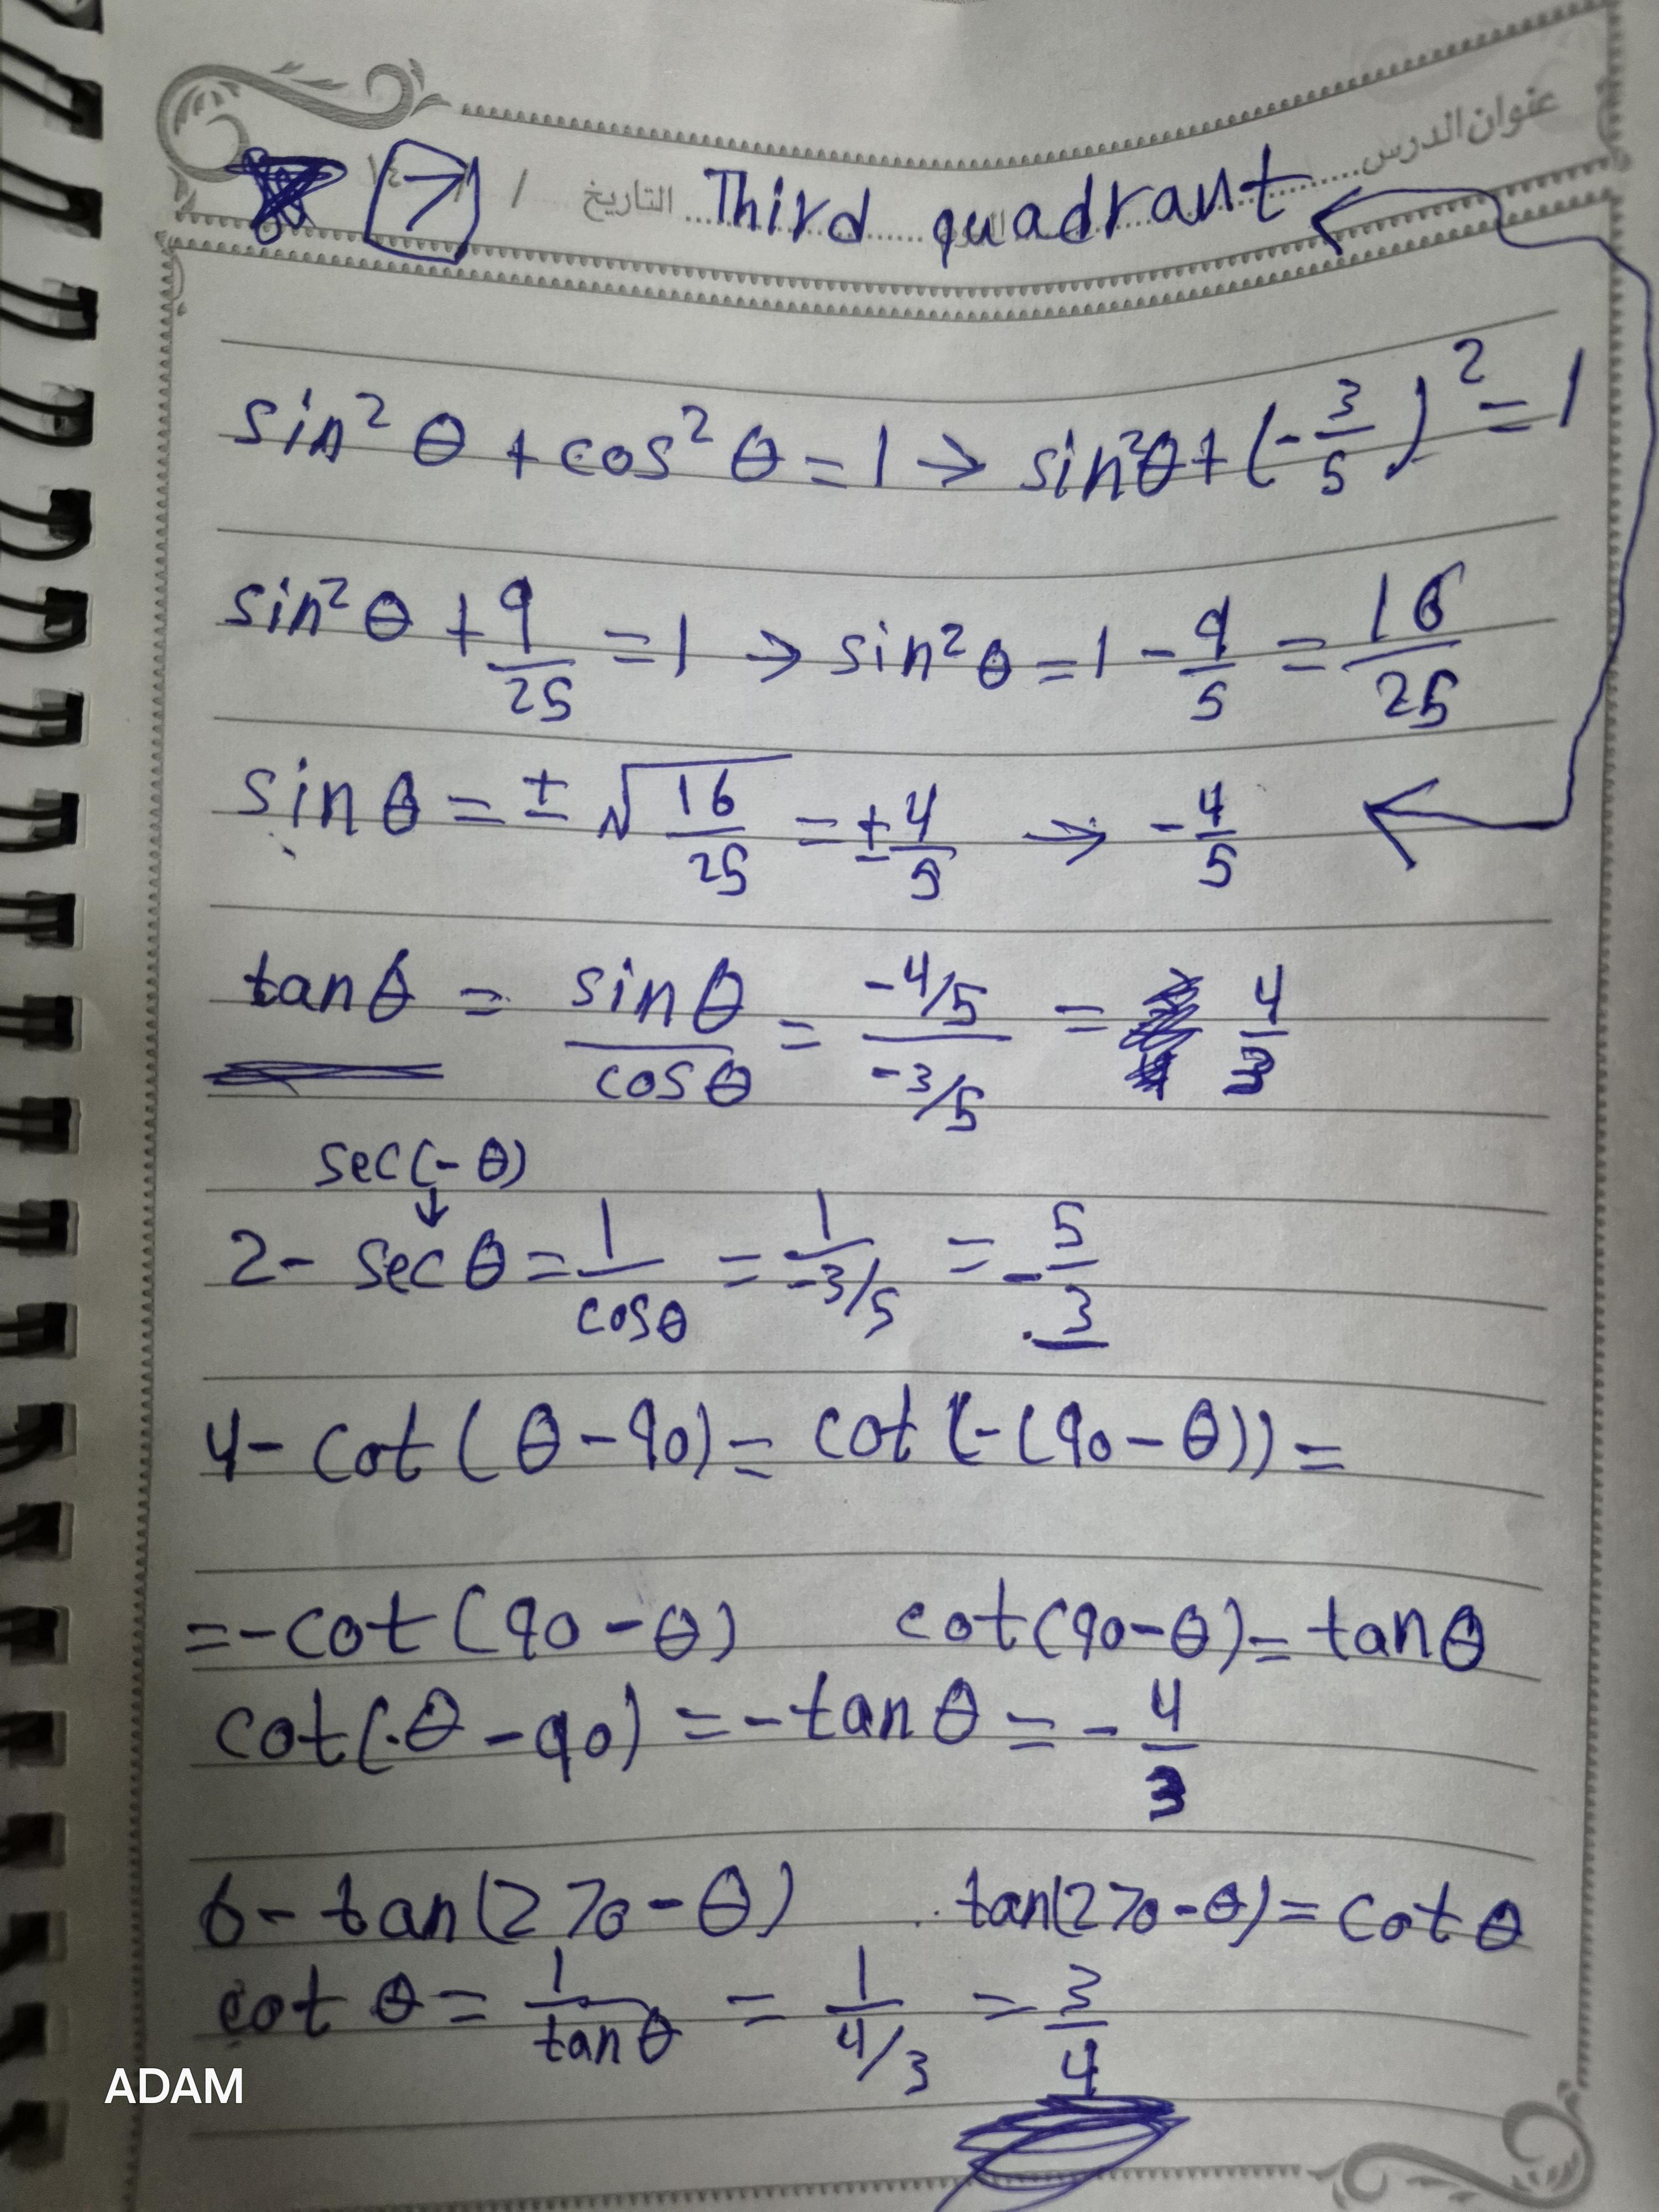 عنوان الدرس
التاريخ / ١٤
7 Third quadrant
sin² θ + cos² θ = 1 → sin²θ + (-3/5)² = 1
sin² θ + 9/25 = 1 → sin² θ = 1 - 9/5 = 16/25
sin θ = ± √16/25 = ± 4/5 → - 4/5
tan θ = sin θ/cos θ = -4/5/-3/5 = 4/3
sec(-θ)
↓
2- sec θ = 1/cos θ = 1/-3/5 = - 5/3
4- cot (θ - 90) = cot (-(90 - θ)) =
= - cot (90 - θ) cot(90-θ) = tan θ
cot(θ - 90) = - tan θ = - 4/3
6- tan(270 - θ) tan(270-θ) = cot θ
cot θ = 1/tan θ = 1/4/3 = 3/4
ADAM